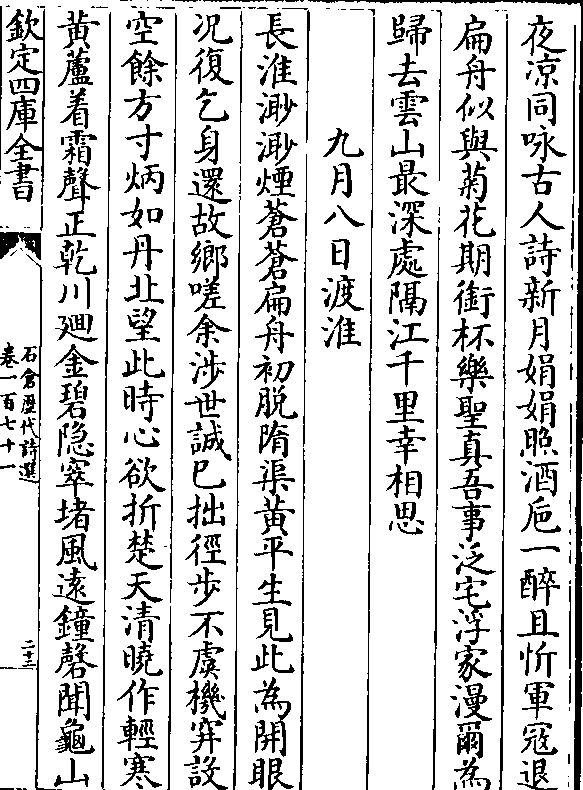 夜凉同咏古人詩新月娟娟照酒巵一醉且忻軍冦退
扁舟似與菊花期銜杯樂聖真吾事泛宅浮家漫爾為
歸去雲山最深處隔江千里幸相思
九月八日渡淮
長淮渺渺煙蒼蒼扁舟初脱隋渠黄平生見此為開眼
况復乞身還故鄉嗟余涉世誠已拙徑步不虞機穽設
空餘方寸炳如丹北望此時心欲折楚天清曉作輕寒
黄蘆着霜聲正乾川廻金碧隐窣堵風逺鐘磬聞龜山
欽定四庫全書
石倉歷代詩選
卷一百七十一
二十二